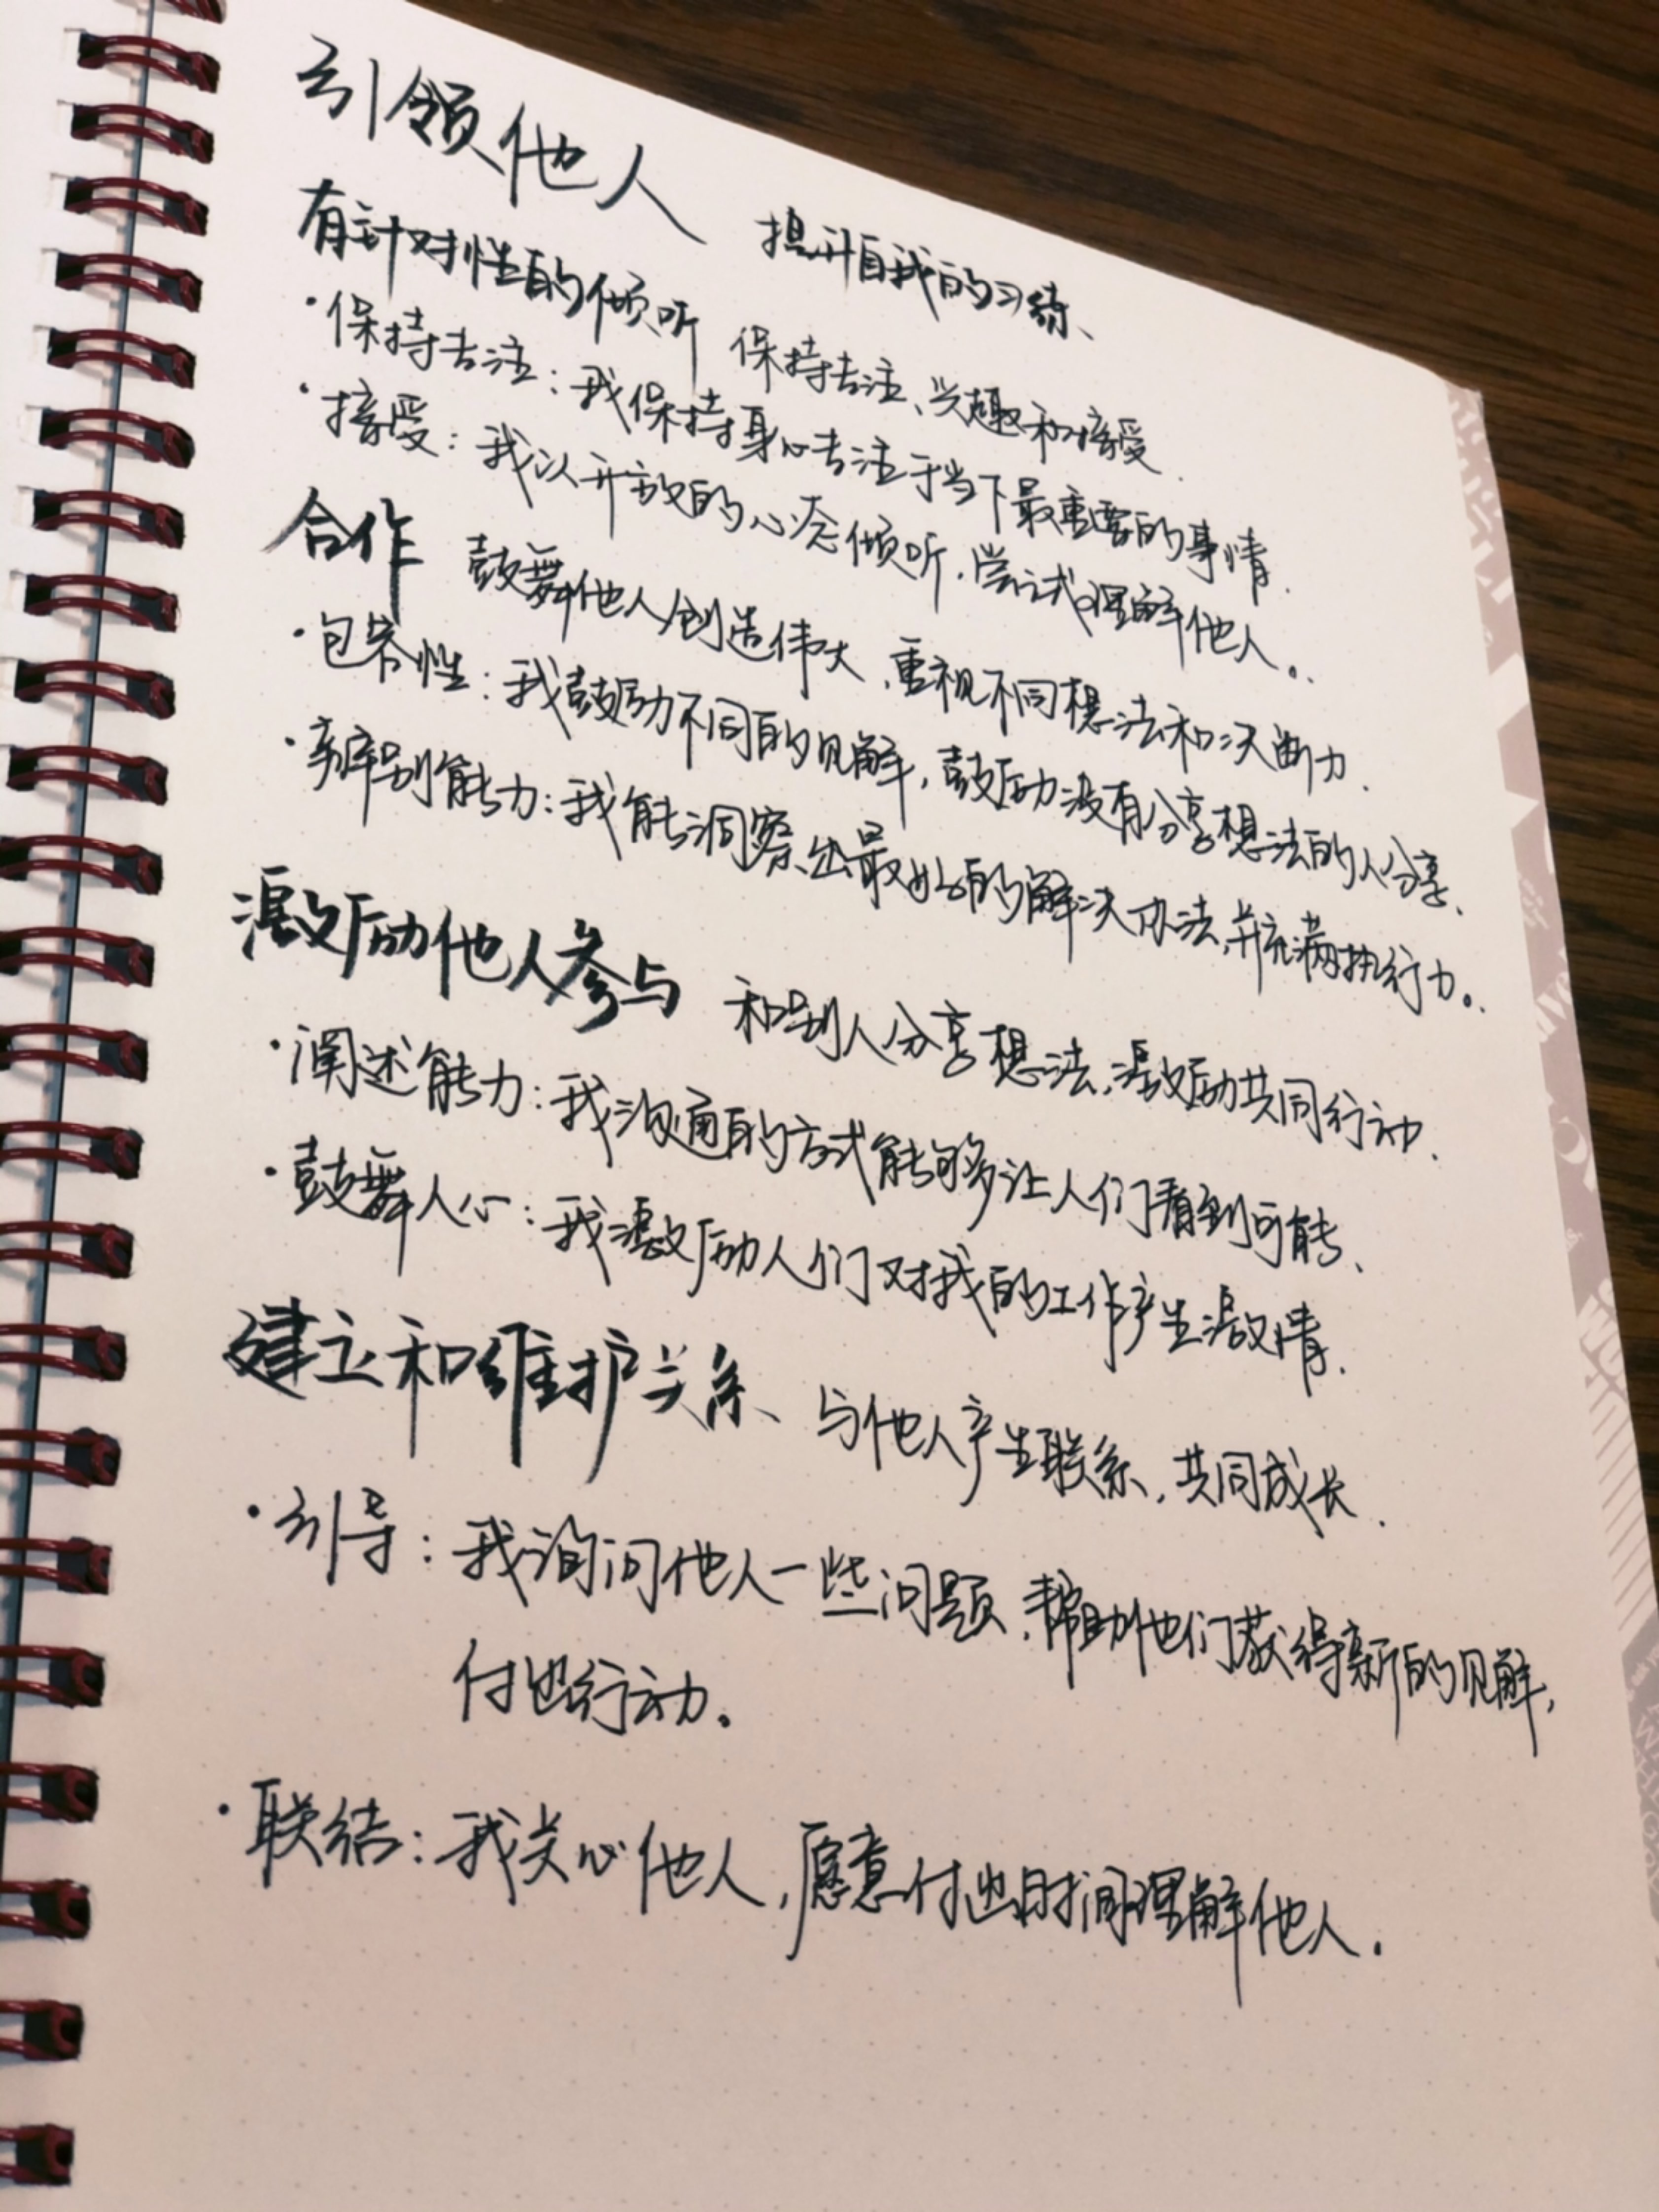 引领他人 提升自我的习练、
有针对性的倾听 保持专注、兴趣和接受.
·保持专注：我保持身心专注于当下最重要的事情.
·接受：我以开放的心态倾听.尝试理解他人。.
合作 鼓舞他人创造伟大、重视不同想法和决断力.
·包容性：我鼓励不同的见解，鼓励没有分享想法的人分享、
·辨别能力：我能洞察出最好的解决办法，并充满执行力。.
激励他人参与 和别人分享想法，激励共同行动.
·阐述能力：我沟通的方式能够让人们看到可能、
·鼓舞人心：我激励人们对我的工作产生激情.
建立和维护关系、与他人产生联系，共同成长.
·引导：我询问他人一些问题，帮助他们获得新的见解，
付出行动。
·联结：我关心他人，愿意付出时间理解他人.